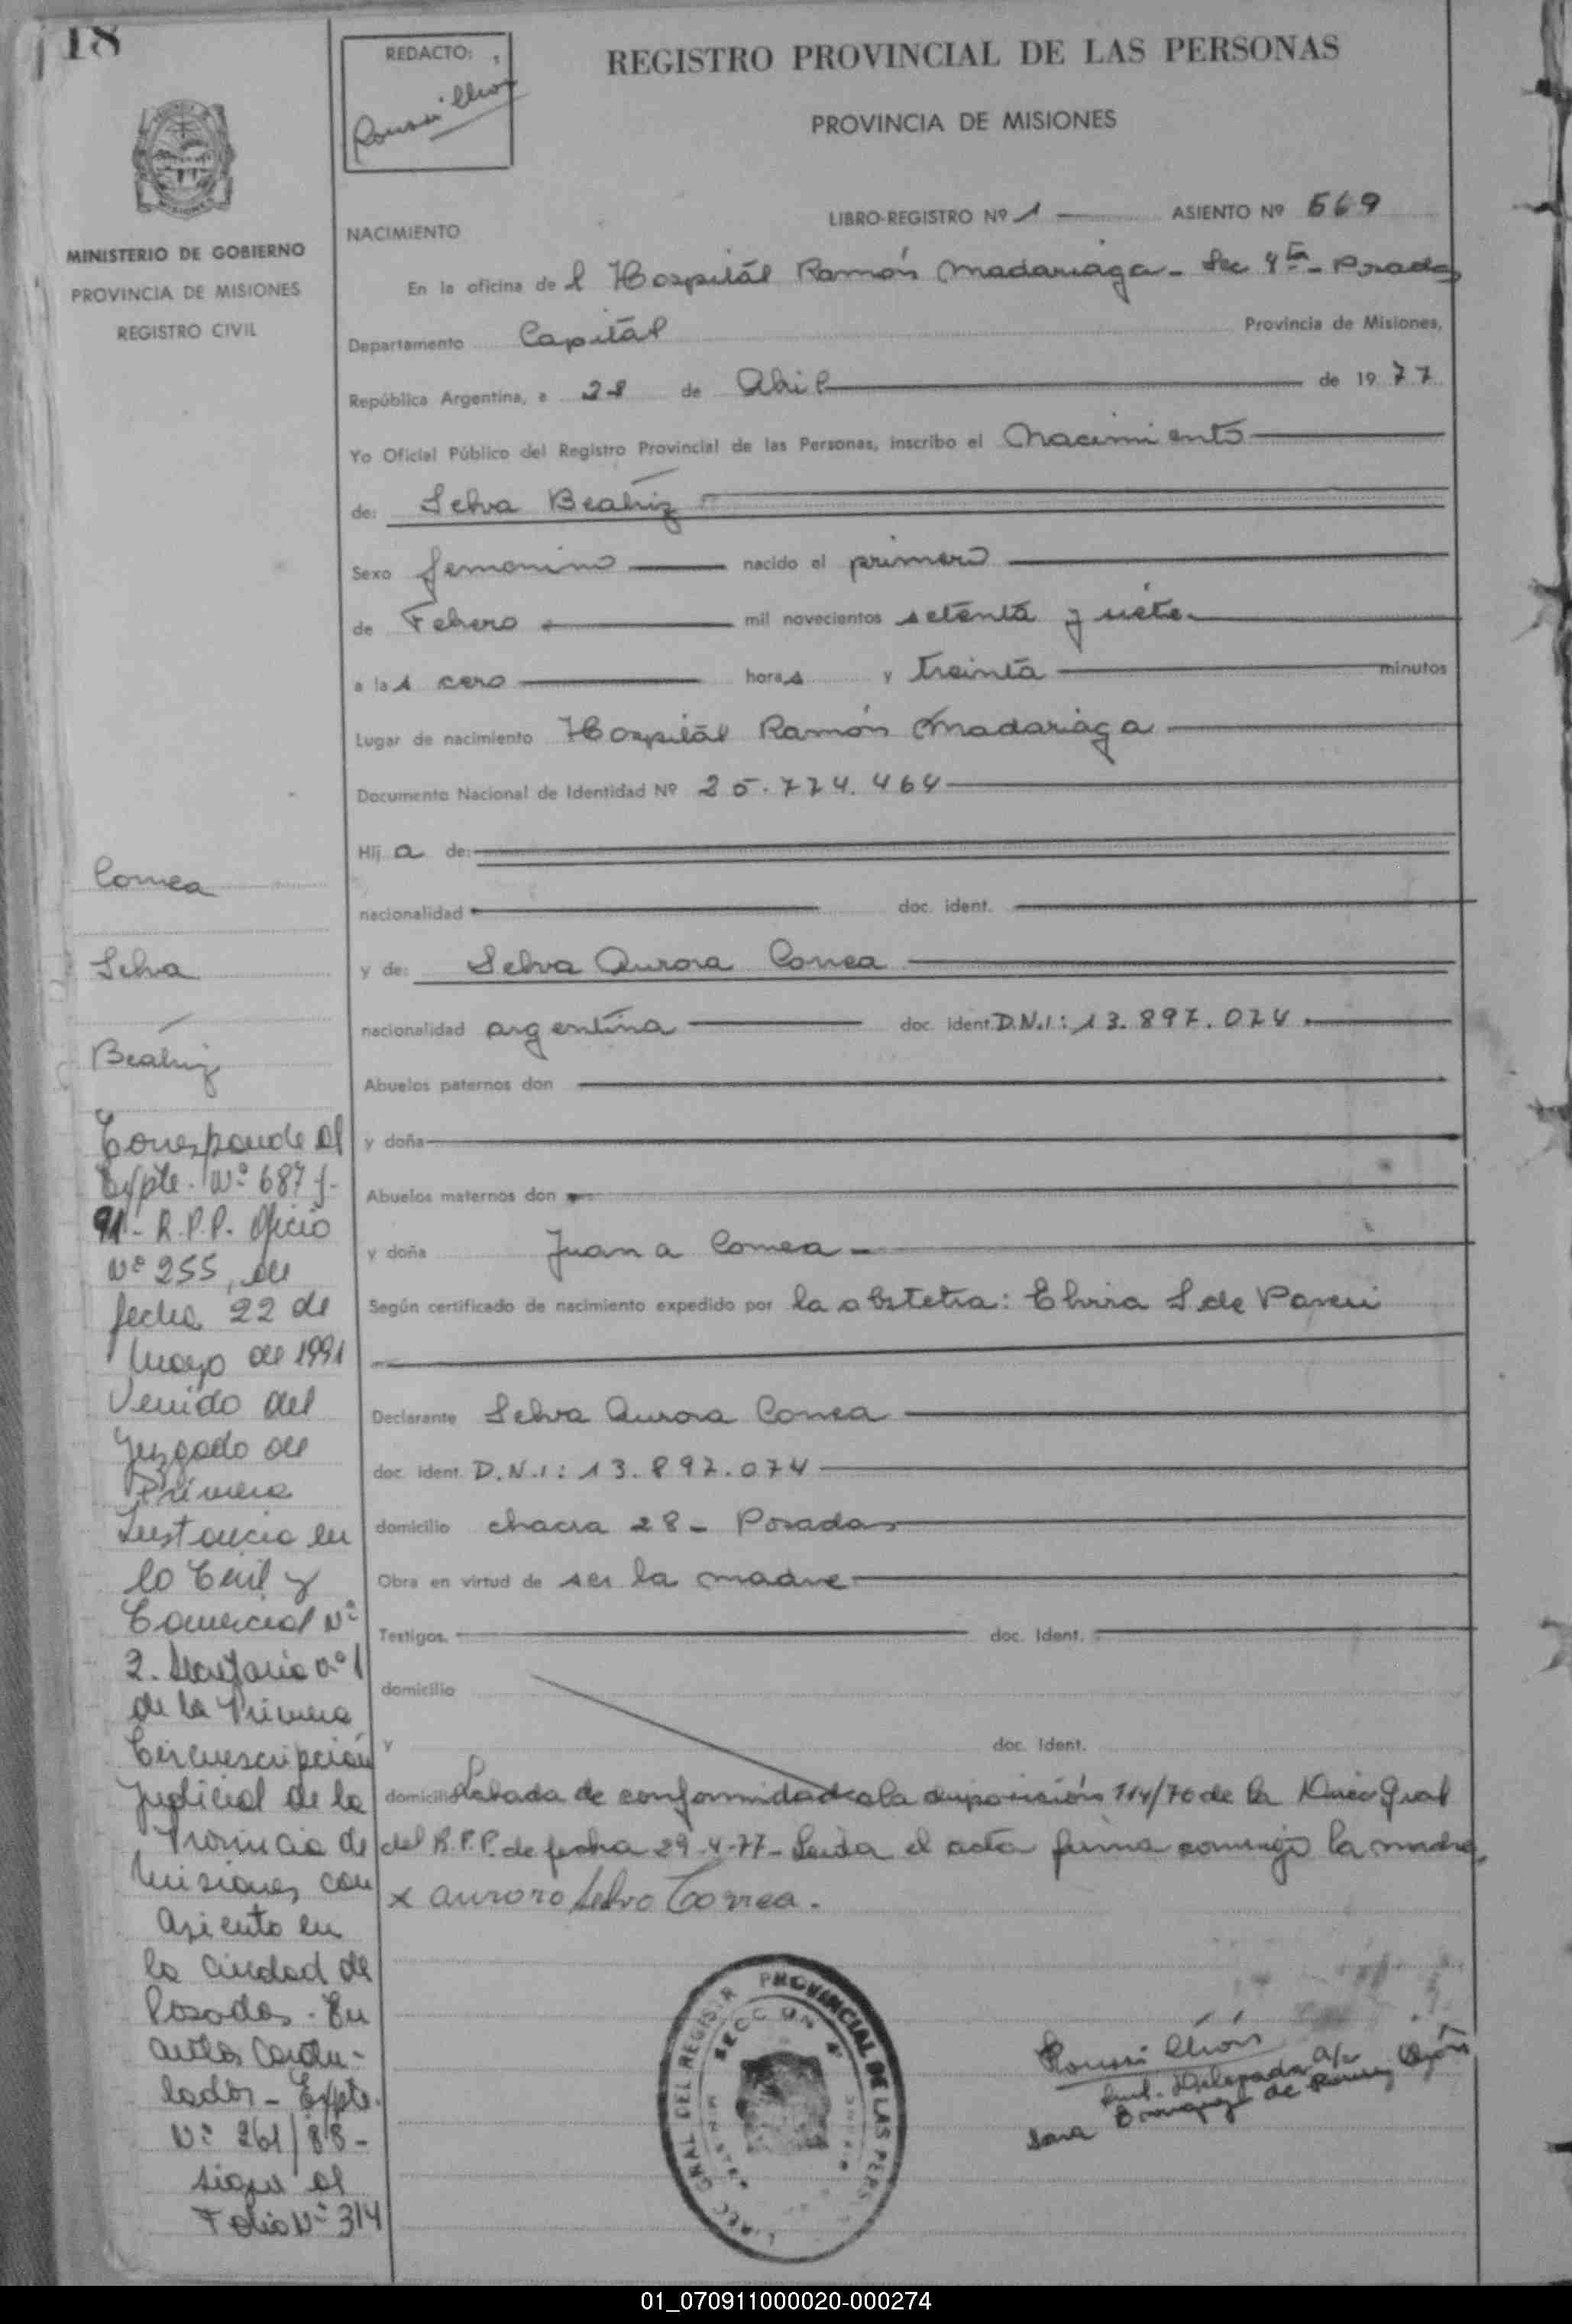 18
REDACTO:
REGISTRO PROVINCIAL DE LAS PERSONAS
PROVINCIA DE MISIONES
LIBRO-REGISTRO Nº 1 ASIENTO Nº 569
NACIMIENTO
MINISTERIO DE GOBIERNO
PROVINCIA DE MISIONES
REGISTRO CIVIL
En la oficina de l Hospitál Ramón Madariaga - Sec 4ta - Posadas
Departamento Capitál Provincia de Misiones,
República Argentina, a 28 de Abril de 1977
Yo Oficial Público del Registro Provincial de las Personas, inscribo el Nacimiento
de: Selva Beatriz
Sexo femenino nacido el primero
de Febrero mil novecientos setenta y siete
a las cero horas y treinta minutos
Lugar de nacimiento Hospitál Ramón Madariaga
Documento Nacional de Identidad Nº 25.774.464
Hija de:
nacionalidad doc. ident.
y de: Selva Aurora Correa
nacionalidad argentina doc. ident. D.N.I: 13.897.074
Abuelos paternos don
y doña
Abuelos maternos don
y doña Juana Correa
Según certificado de nacimiento expedido por la obstetra: Elvira S de
Declarante Selva Aurora Correa
doc. ident. D.N.I: 13.897.074
domicilio chacra 28 - Posadas
Obra en virtud de ser la madre
Testigos. doc. Ident.
domicilio
y doc. Ident.
domicilio Labrada de conformidad a la disposición 114/70 de la Direc Gral
del R.P.P. de fecha 29-4-77 - Leída el acta firma conmigo la madre.
x Aurora Selva Correa.
Correa
Selva
Beatriz
Corresponde al
Expte. Nº 687 f-
91 - R.P.P. Oficio
Nº 255, de
fecha 22 de
Mayo de 1991
Venido del
Juzgado de
Primera
Instancia en
lo Civil y
Comercial Nº
2. Secretaria nº 1
de la Primera
Circunscripción
Judicial de la
Provincia de
Misiones, con
asiento en
la ciudad de
Posadas. En
autos Caratu-
lados - Expte.
Nº 261/88 -
sigue al
Folio Nº 314
DIREC GRAL DEL REGISTR PROVINCIAL DE LAS PERS
SECCION 4
01_070911000020-000274